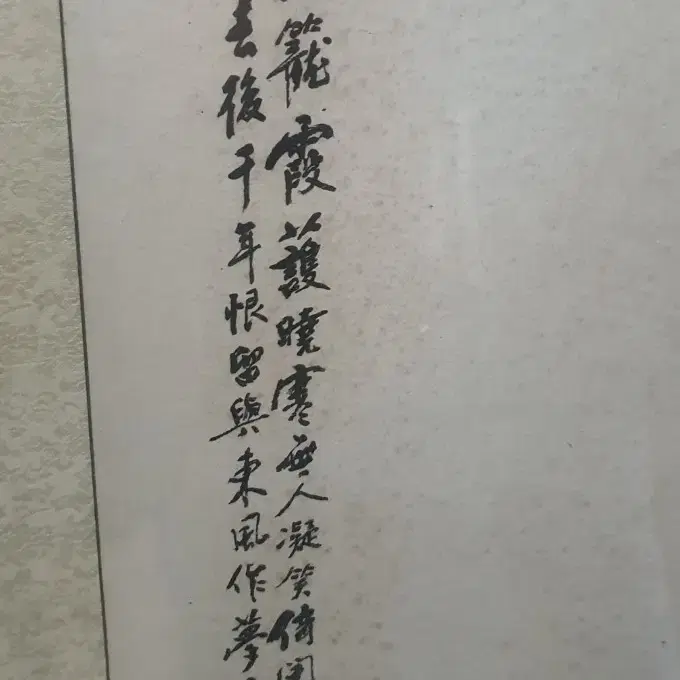 籠霞護曉寒無人凝笑倚闌
去後千年恨留與東風作夢